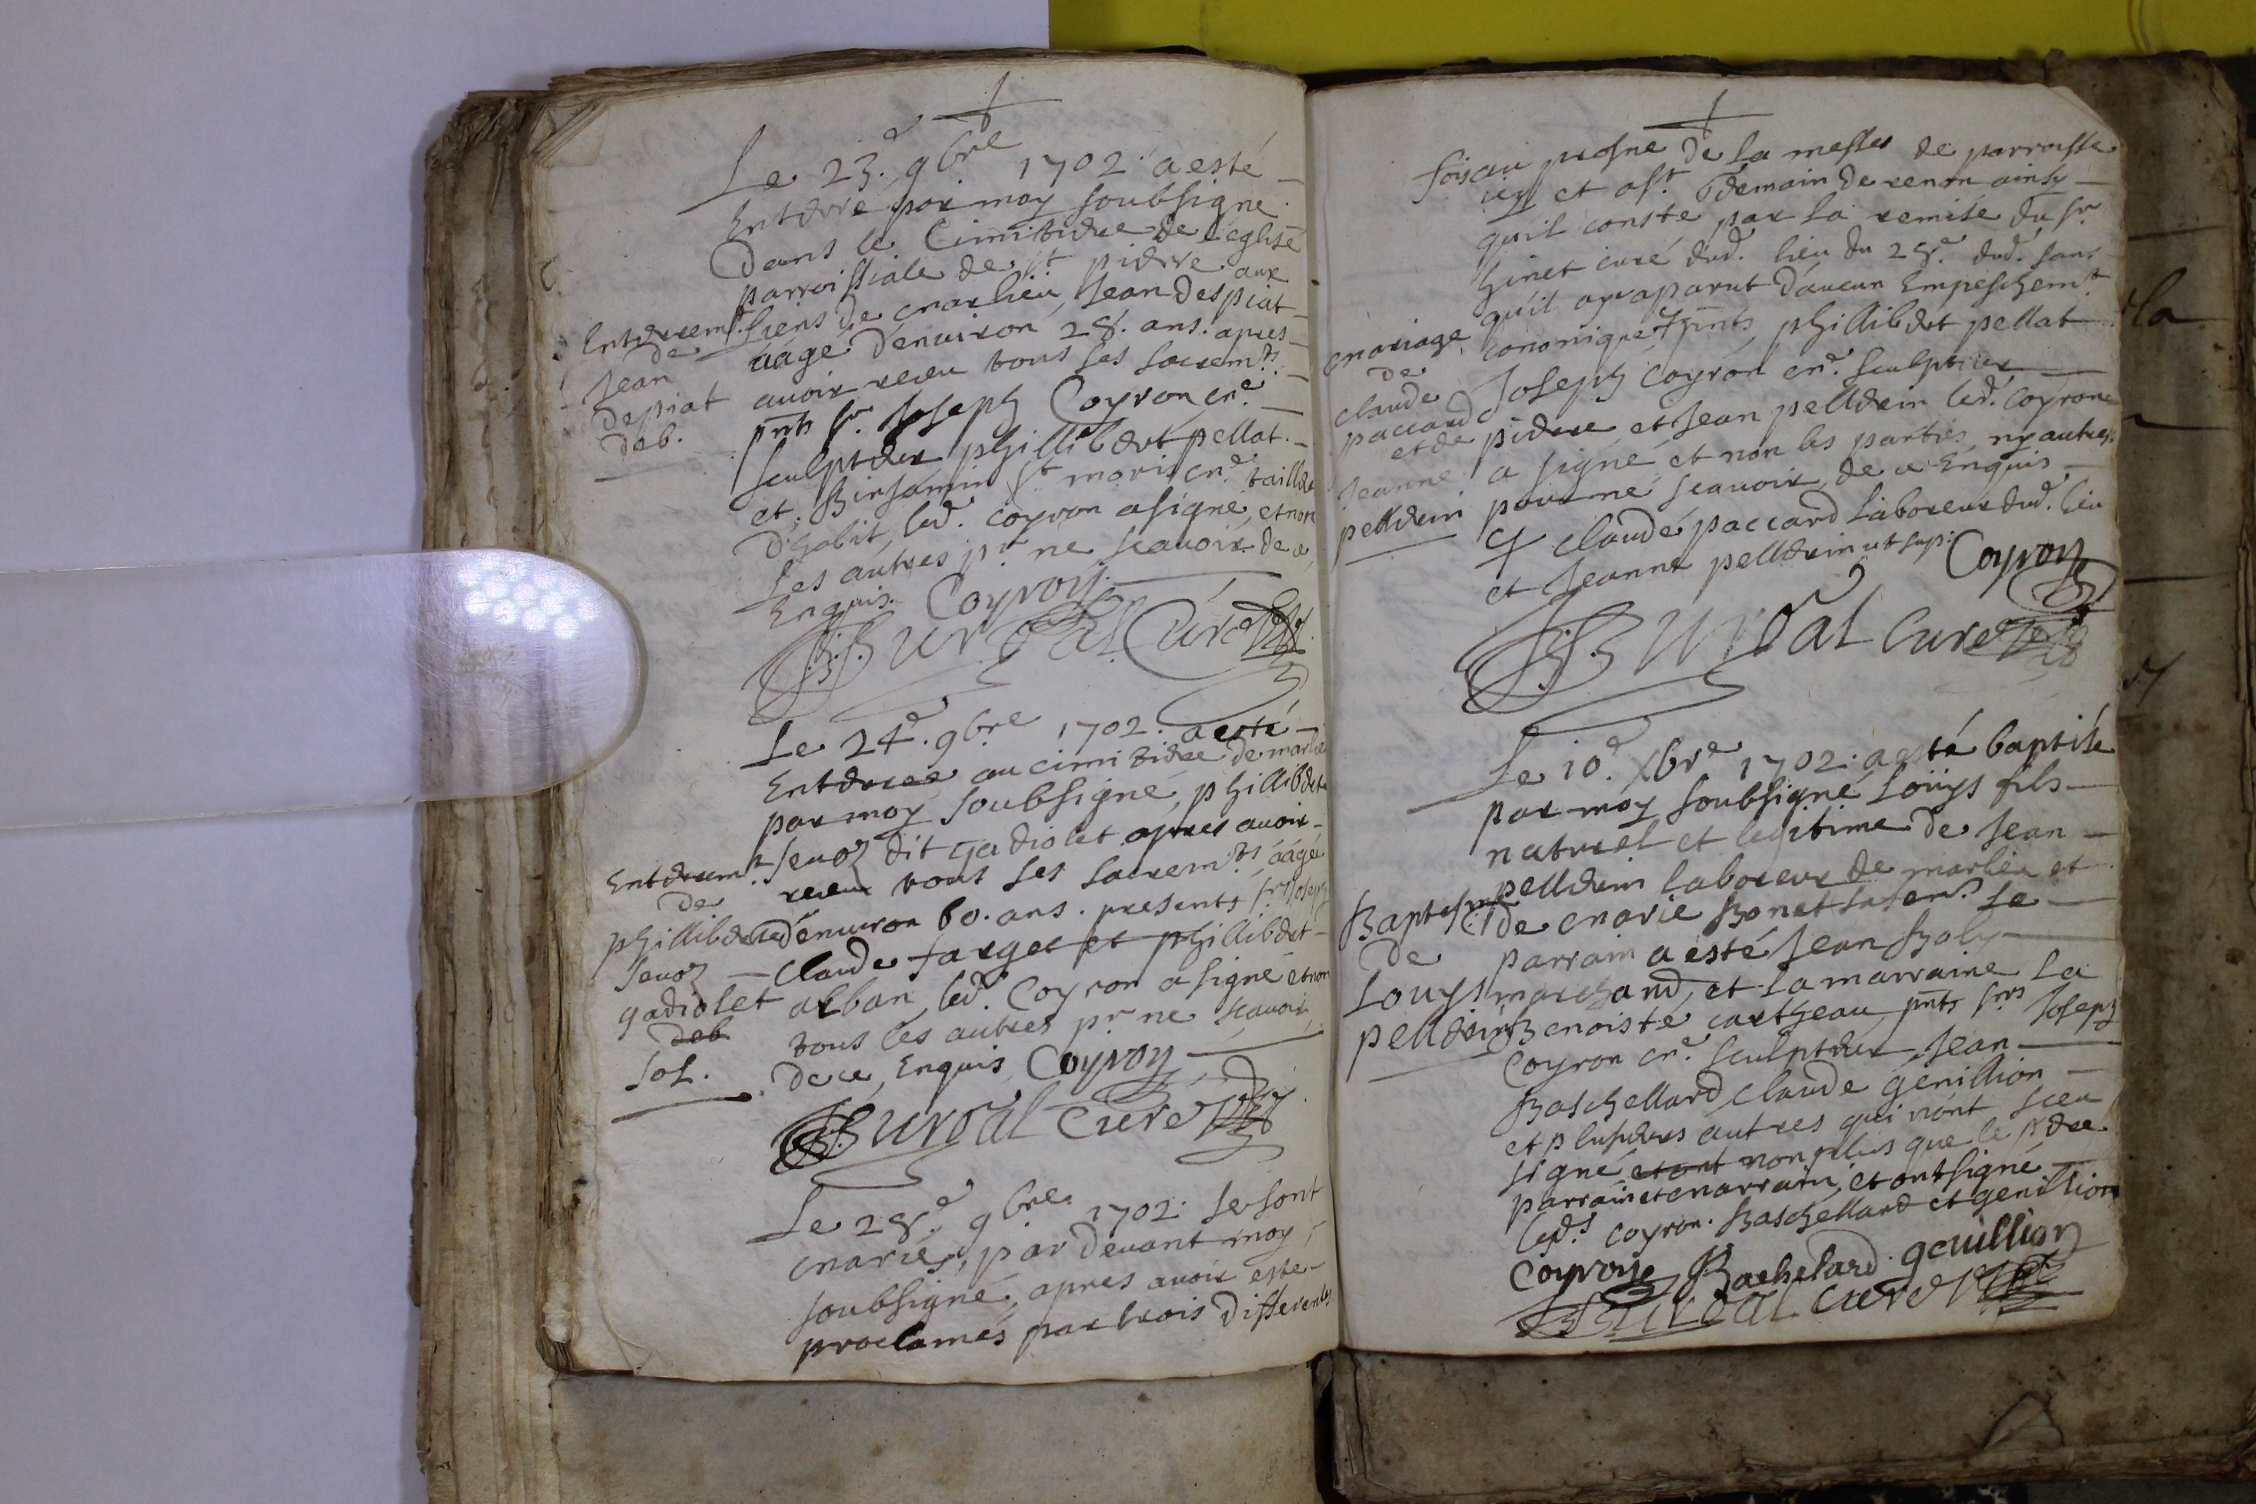 Le 23.e 9bre 1702. a esté
Enterré par moy soubsigné
Dans le Cimitiere de l'eglise
parroissiale de st pierre aux
liens de marlieu, Jean despiat
aagé d'environ 28. ans. apres
avoir receu tous ses sacremts.
pnts sr. Joseph Coyron mre.
sculpteur phillibert pellat.
et. Binjamin st moris mre. tailleur
d'habit, led. coyron a signé, et non
Les autres pr. ne scavoir de ce
Enquis. Coyron
Burdal Curé
Enterremt.
de
Jean
despiat
deb.
Le 24.e 9bre 1702. a esté
Enterrée au cimitiere de marlieu
par moy soubsigné, phillibert
Jenoz dit gadiolet apres avoir
receu tous ses sacremts, aagé
d'environ 60. ans. presents srs Joseph
Claude farget et phillibert
alban, led. Coyron a signé et non
tous les autres pr. ne scavoir
de ce, Enquis Coyron
Burdal Curé
Enterremt.
de
phillibert
Jenoz
gadiolet
deb
sol.
Le 28.e 9bre 1702. se sont
mariés, par devant moy,
soubsigné, apres avoir esté
proclamés par trois differentes
fois au prosne de la messes de parroisse
icy et a st. demain de renon ainsy
qu'il conste par la remise du sr.
hinet curé dud. lieu du 28.e dud. sans
qu'il aye aparut d'aucun Empeschemt
canonique pnts, phillibert pellat
Joseph Coyron mre. sculpteur
pierre et Jean pellerin led. Coyron
a signé et non les parties, ny autres
pour ne scavoir, de ce Enquis
claude paccard laboreur dud. lieu
et Jeanne pellerin ut sup: Coyron
Burdal Curé
mariage
de
claude
paccard
et de
Jeanne
pellerin
Le 10.e Xbre 1702. a esté baptisé
par moy soubsigné Louys fils
naturel et legitime de Jean
pellerin laboreur de marlieu et
de marie Bonet sa fem. Le
parrain a esté Jean Boly
marchand, et la marraine La
Benoiste cartheau, pnts srs Joseph
Coyron mre. sculpteur Jean
Baschellard Claude genillion
et plusieurs autres qui n'ont sceu
signé et ont non plus que le pere
parrain et marrain, et ont signé
lesds. coyron. Baschellard et genillion
Coyron Bachelard genillion
Burdal curé
Baptesme
de
Louys
pellerin